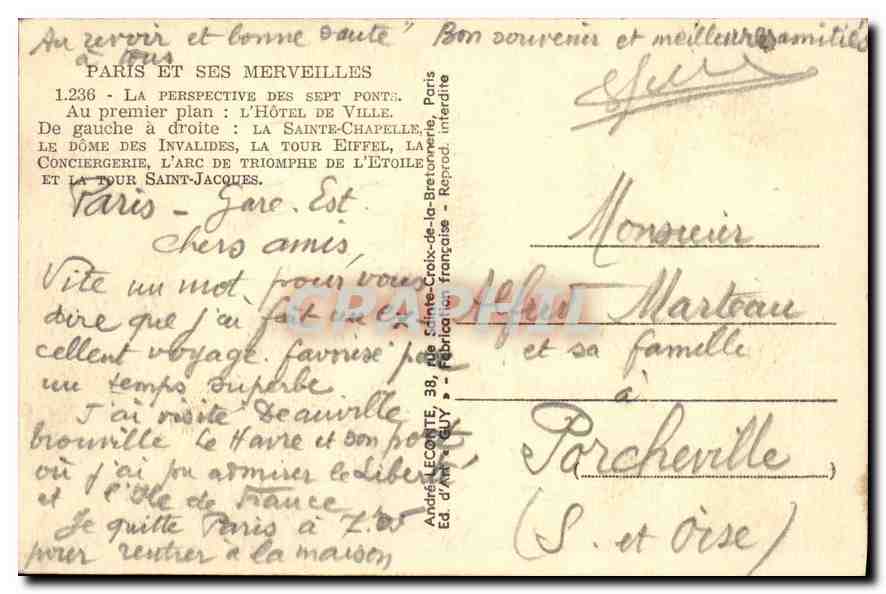 Au revoir et bonne Santé" Bon souvenir et meilleures amitiés
à tous
PARIS ET SES MERVEILLES
1.236 - LA PERSPECTIVE DES SEPT PONTS.
Au premier plan : L'HÔTEL DE VILLE.
De gauche à droite : LA SAINTE-CHAPELLE,
LE DÔME DES INVALIDES, LA TOUR EIFFEL, LA
CONCIERGERIE, L'ARC DE TRIOMPHE DE L'ETOILE
ET LA TOUR SAINT-JACQUES.
Paris - Gare. Est.
Chers amis,
Vite un mot, pour vous
dire que j'ai fait un ex-
cellent voyage favorisé par
un temps superbe
J'ai visité Deauville
Trouville Le Havre et son port
où j'ai pu admirer le Liberté
et l'Ile de France
Je quitte Paris à
pour rentrer à la maison
André LECONTE, 38, rue Sainte-Croix-de-la-Bretonnerie, Paris
Ed. d'Art « GUY » - Fabrication française - Reprod. interdite
Monsieur
Marteau
et sa famille
à
Porcheville
(S. et Oise)
CPAPHIL